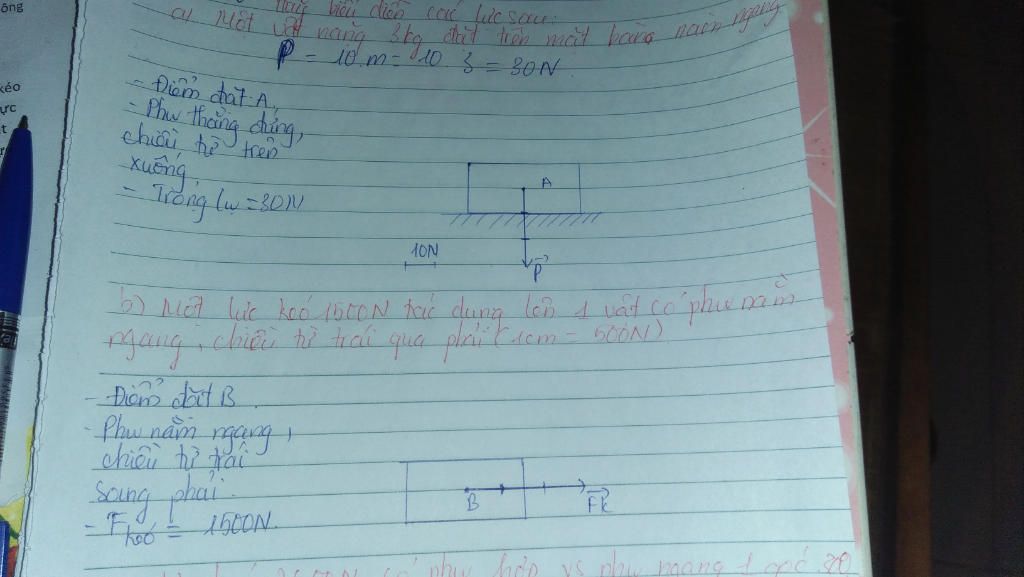 ông
kéo
ực
diễn các lực sau:
a) Một vật nặng 3kg đặt trên mặt bàn nằm ngang
P = 10.m = 10.3 = 30N.
- Điểm đặt A,
- Phư thẳng đứng,
chiều từ trên
xuống.
- Trọng lự = 30N
A
10N
P
b) Một lực kéo 1500N tác dụng lên 1 vật có phư nằm
ngang, chiều từ trái qua phải (1cm = 500N)
- Điểm đặt B.
- Phư nằm ngang,
chiều từ trái
sang phải.
- Fkéo = 1500N.
B
Fk